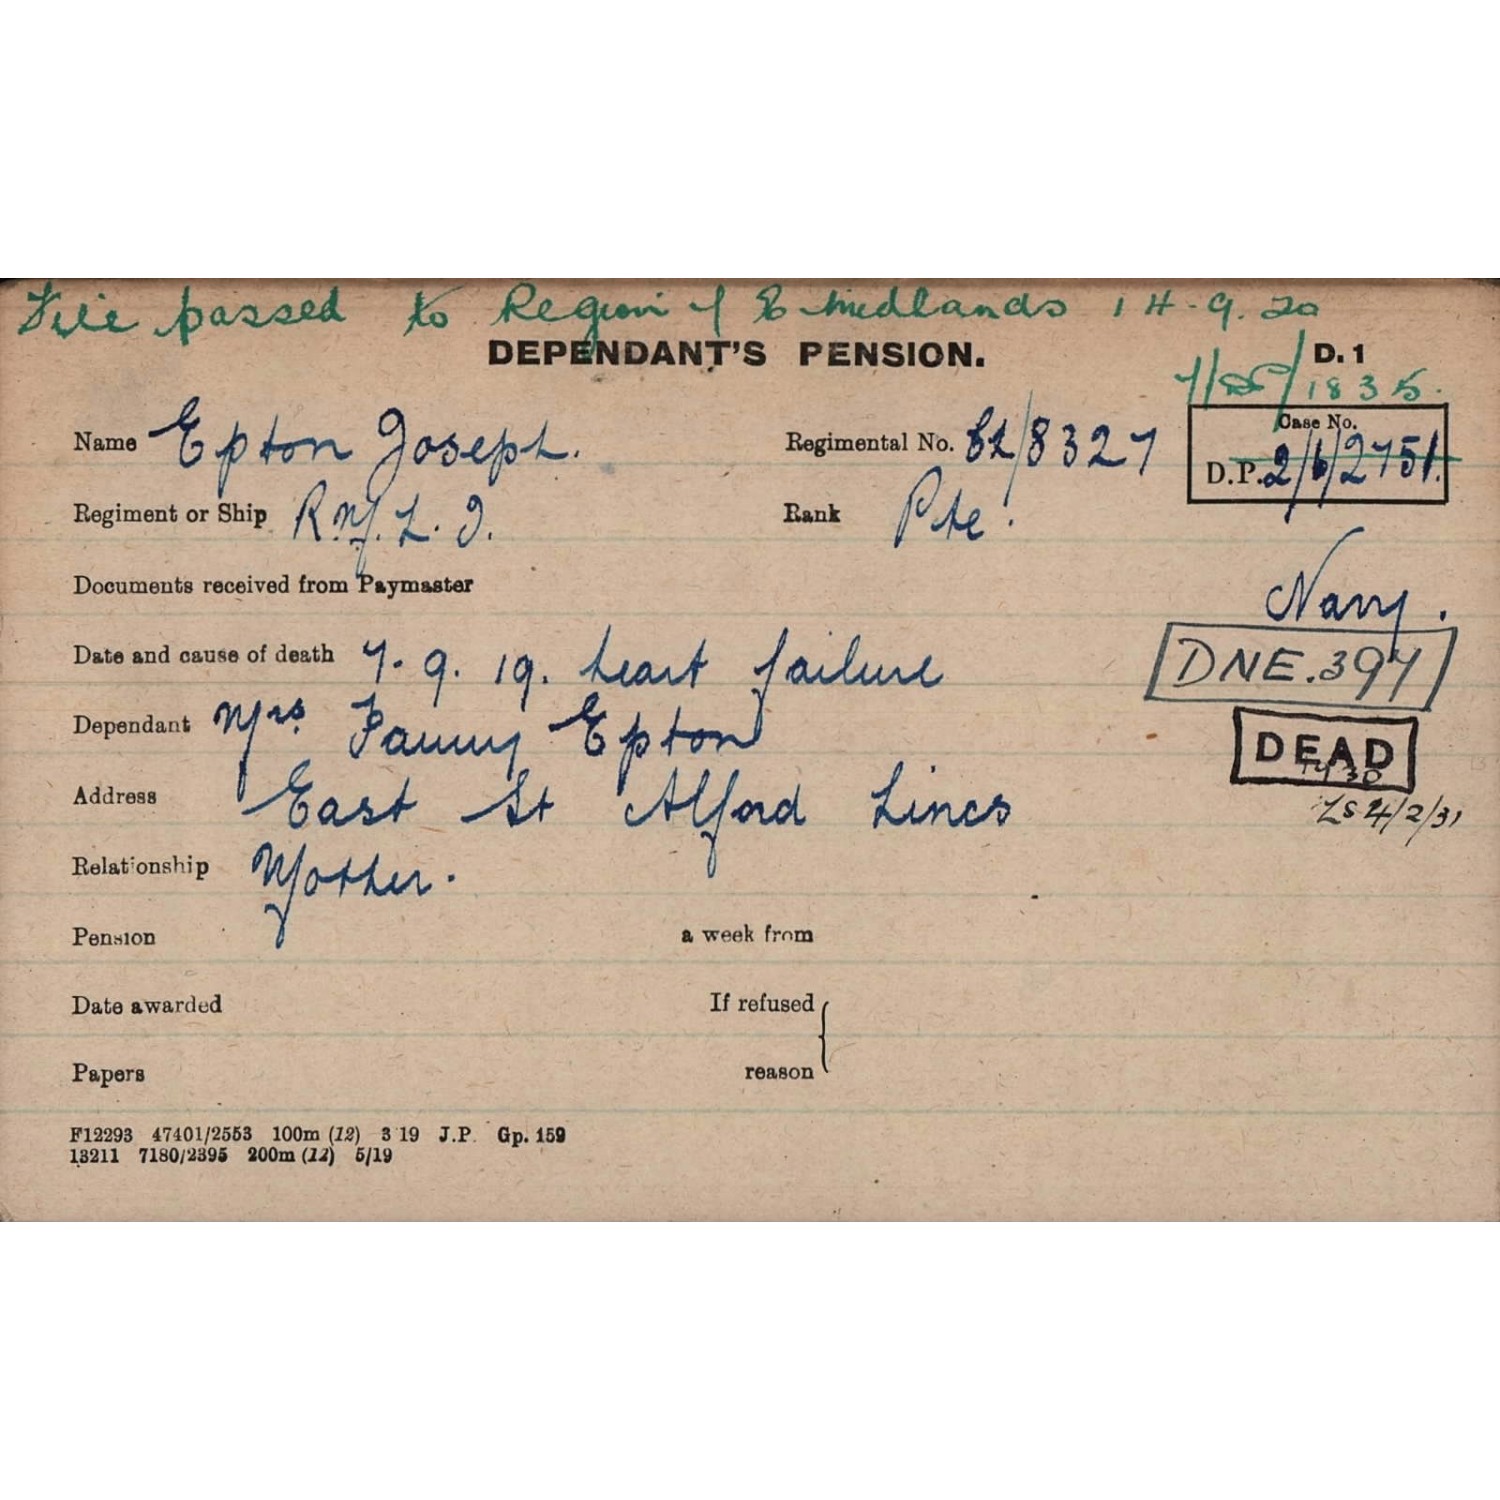 File passed to Region of E Midlands 14.9.20
DEPENDANT'S PENSION.
D. 1
7/DP/1835.
Name Epton Joseph.
Regimental No. Ch/8327
Case No.
D.P. 2/6/2751.
Regiment or Ship R.M.L.I.
Rank Pte.
Documents received from Paymaster
Navy.
Date and cause of death 7.9.19. heart failure
DNE.397
Dependant Mrs Fanny Epton
DEAD
Address East St Alford Lincs
4/2/31
Relationship Mother.
Pension a week from
Date awarded If refused
Papers reason
F12293 47401/2553 100m (12) 3 19 J.P. Gp. 159
13211 7180/2395 200m (12) 5/19